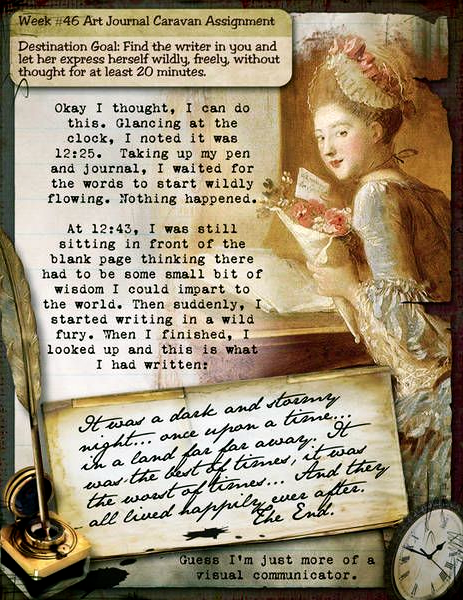 Week #46 Art Journal Caravan Assignment
Destination Goal: Find the writer in you and
let her express herself wildly, freely, without
thought for at least 20 minutes.
Okay I thought, I can do
this. Glancing at the
clock, I noted it was
12:25. Taking up my pen
and journal, I waited for
the words to start wildly
flowing. Nothing happened.
At 12:43, I was still
sitting in front of the
blank page thinking there
had to be some small bit of
wisdom I could impart to
the world. Then suddenly, I
started writing in a wild
fury. When I finished, I
looked up and this is what
I had written:
It was a dark and stormy
night... once upon a time...
in a land far far away. It
was the best of times, it was
the worst of times... And they
all lived happily ever after.
The End.
Guess I'm just more of a
visual communicator.